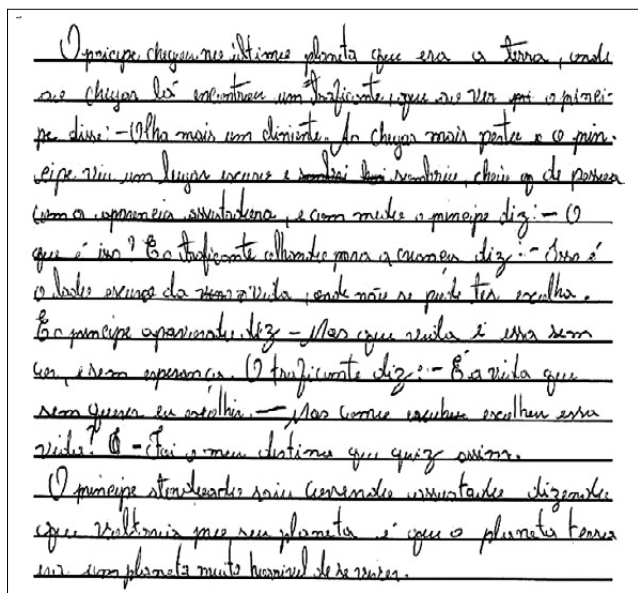 O príncipe chegou no último planeta que era a terra, onde
ao chegar lá encontrou um traficante, que ao ver o prínci-
pe disse: – Olha mais um cliniente. Ao chegar mais perto o prín-
cipe viu um lugar escuro e sombrio, cheio de pessoas
com a aparencia assustadora, e com medo o príncipe diz: – O
que é isso? E o traficante olhando para a criança diz: – Isso é
o lado escuro da vida, onde não se pode ter escolha.
E o príncipe apavorado diz – Mas que vida é essa sem
cor, e sem esperança. O traficante diz: – É a vida que
sem querer eu escolhi. — Mas como escolheu essa
vida? – Foi o meu destino que quiz assim.
O príncipe saiu correndo assustado dizendo
que voltaria pro seu planeta é que o planeta terra
um planeta muito horrivel de se viver.